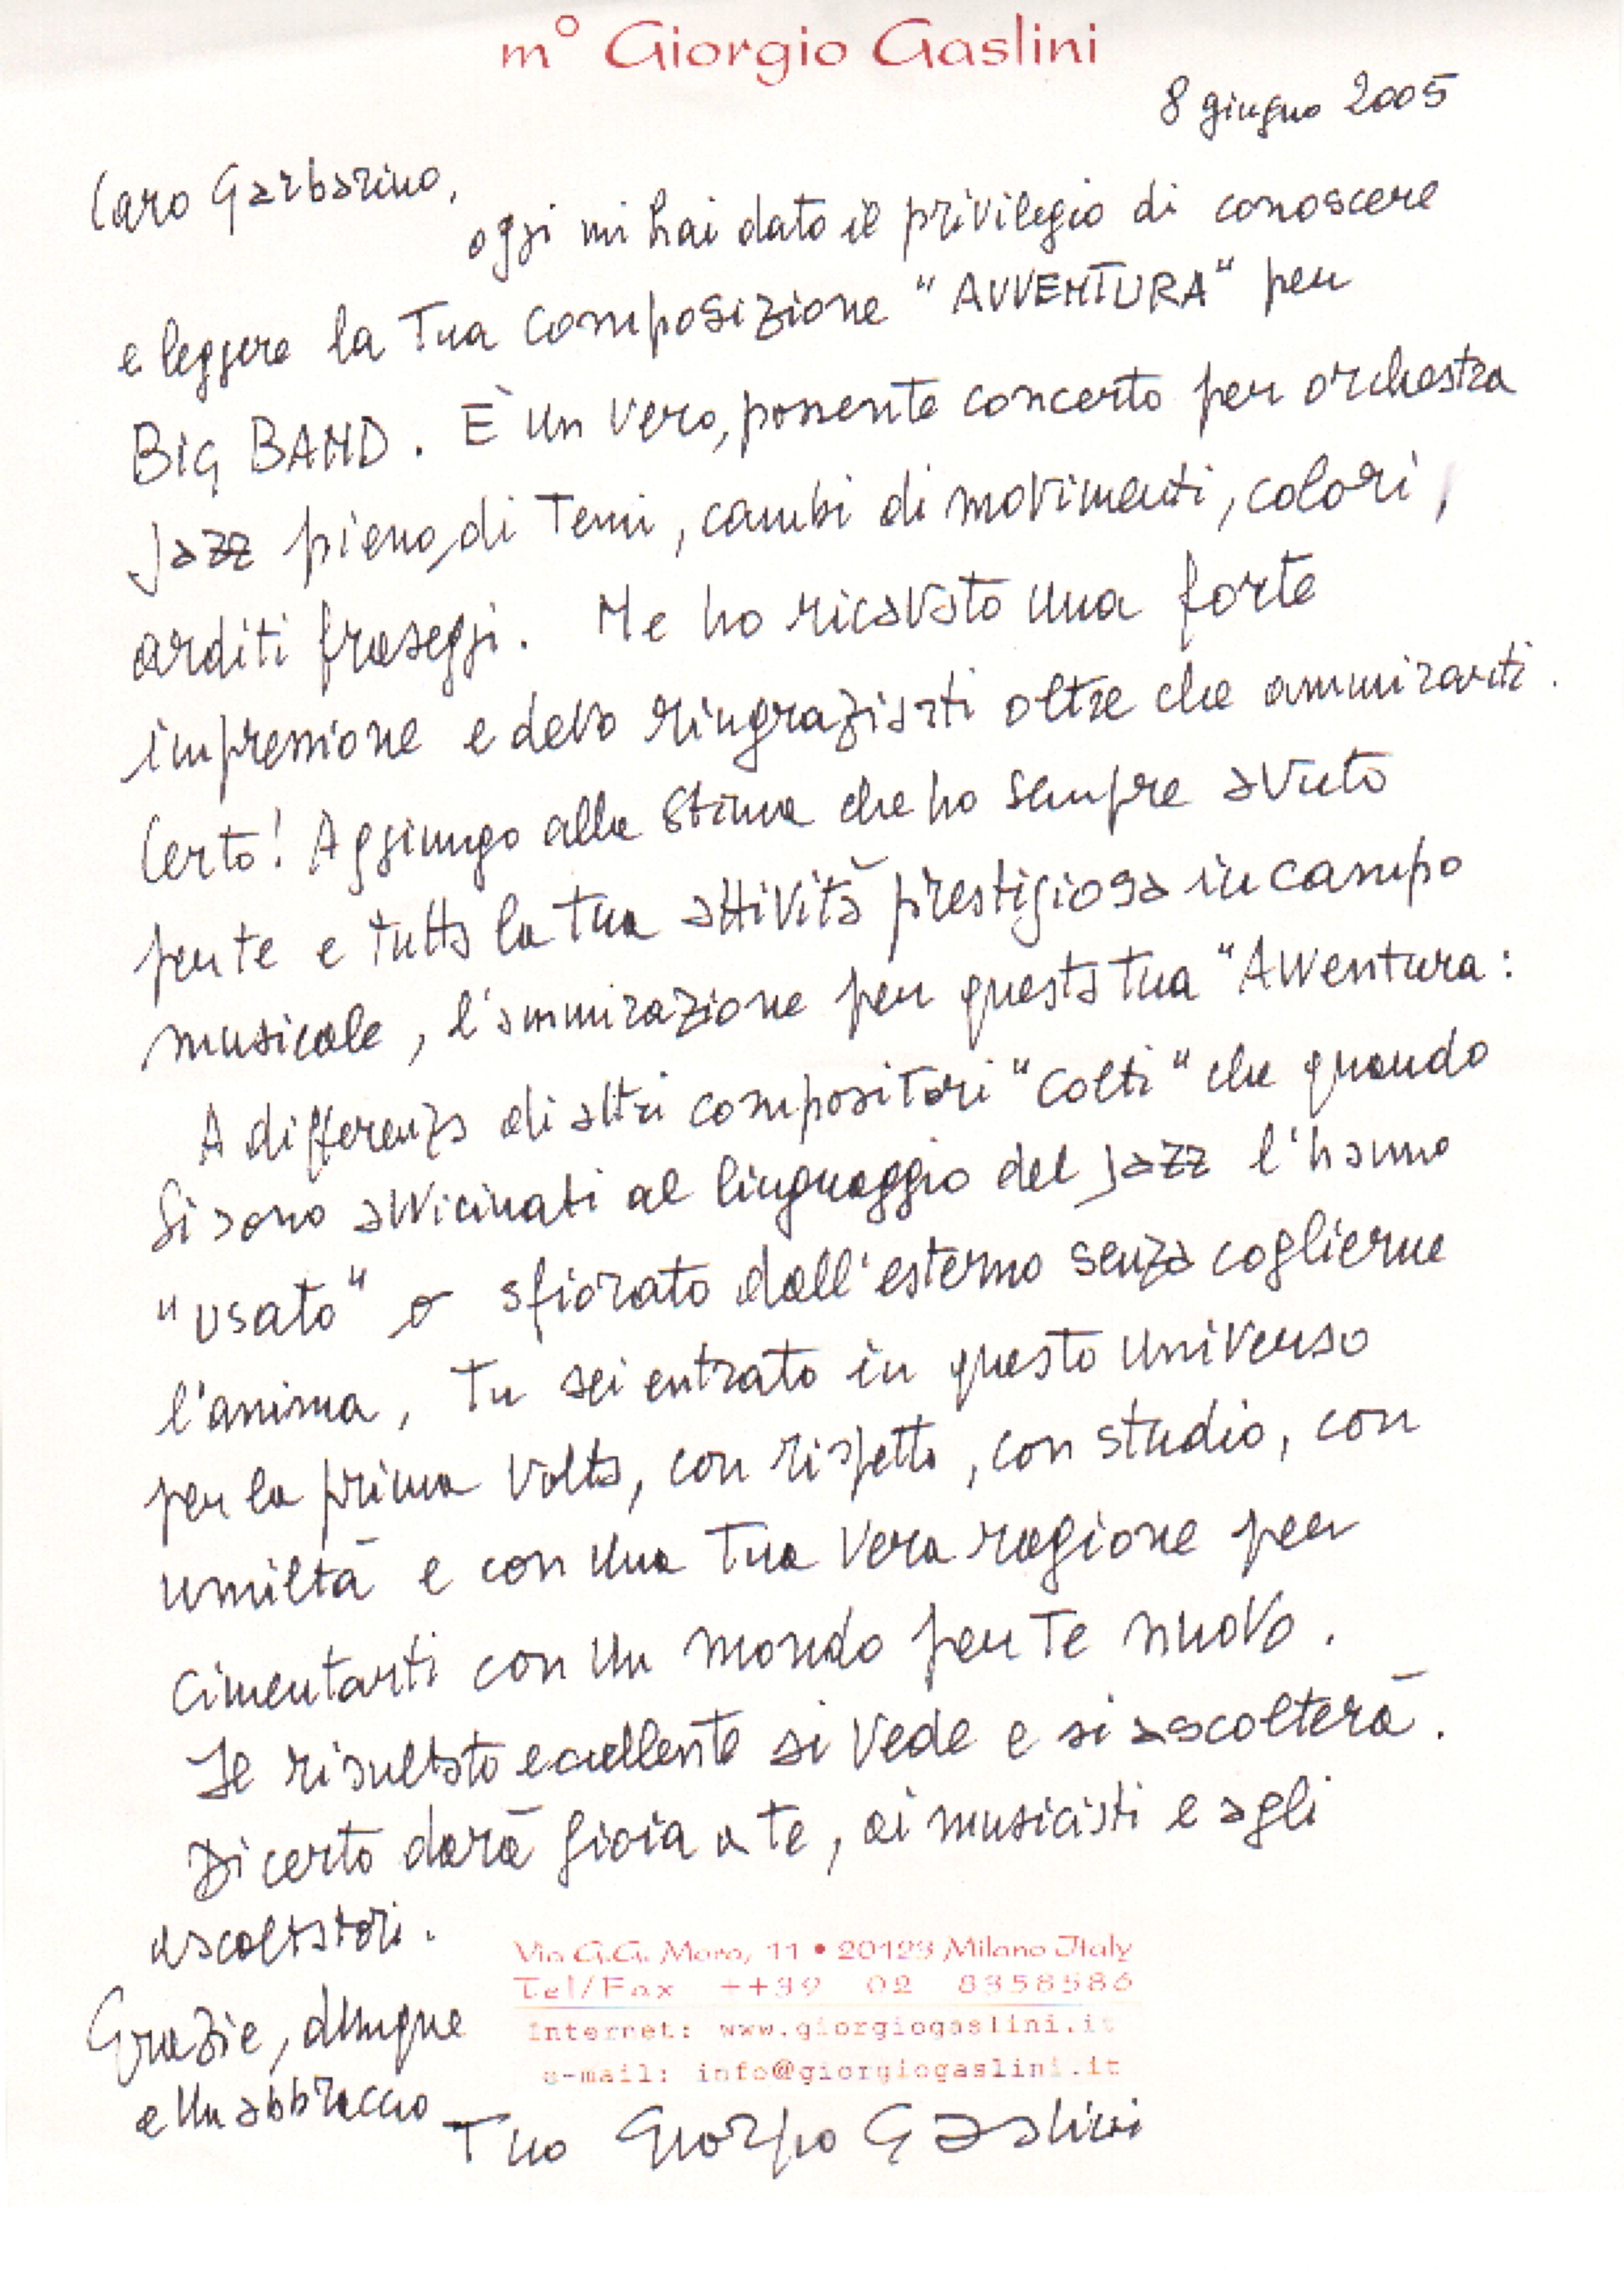 m° Giorgio Gaslini
8 giugno 2005
Caro Garbarino,
oggi mi hai dato il privilegio di conoscere
e leggere la Tua composizione "AVVENTURA" per
BIG BAND. È un vero, possente concerto per orchestra
jazz pieno di Temi, cambi di movimenti, colori,
arditi fraseggi. Ne ho ricavato una forte
impressione e devo ringraziarti oltre che ammirarti.
Certo! Aggiungo alla stima che ho sempre avuto
per te e tutta la tua attività prestigiosa in campo
musicale, l'ammirazione per questa tua "Avventura:
A differenza di altri compositori "colti" che quando
si sono avvicinati al linguaggio del jazz l'hanno
"usato" o sfiorato dall'esterno senza coglierne
l'anima, Tu sei entrato in questo universo
per la prima volta, con rispetto, con studio, con
umiltà e con una Tua vera ragione per
cimentarti con un mondo per Te nuovo.
Il risultato eccellente si vede e si ascolterà.
Di certo darà gioia a te, ai musicisti e agli
ascoltatori.
Grazie, dunque
e un abbraccio
Tuo Giorgio Gaslini
Via G.G. Mora, 11 • 20123 Milano Italy
Tel/Fax ++39 02 8358586
Internet: www.giorgiogaslini.it
e-mail: info@giorgiogaslini.it